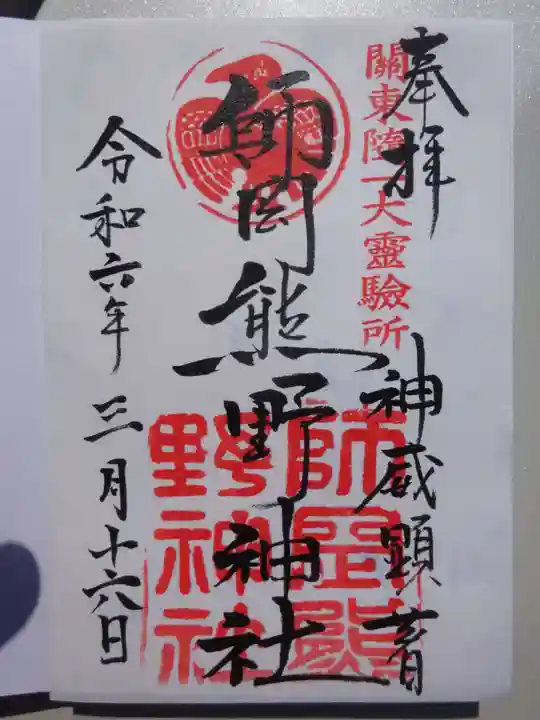 奉拝
關東隨一大靈驗所
神威顕著
師岡熊野神社
師岡熊
野神社
令和六年三月十六日